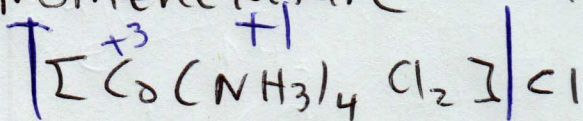 +3 +1
[Co(NH3)4 Cl2] Cl